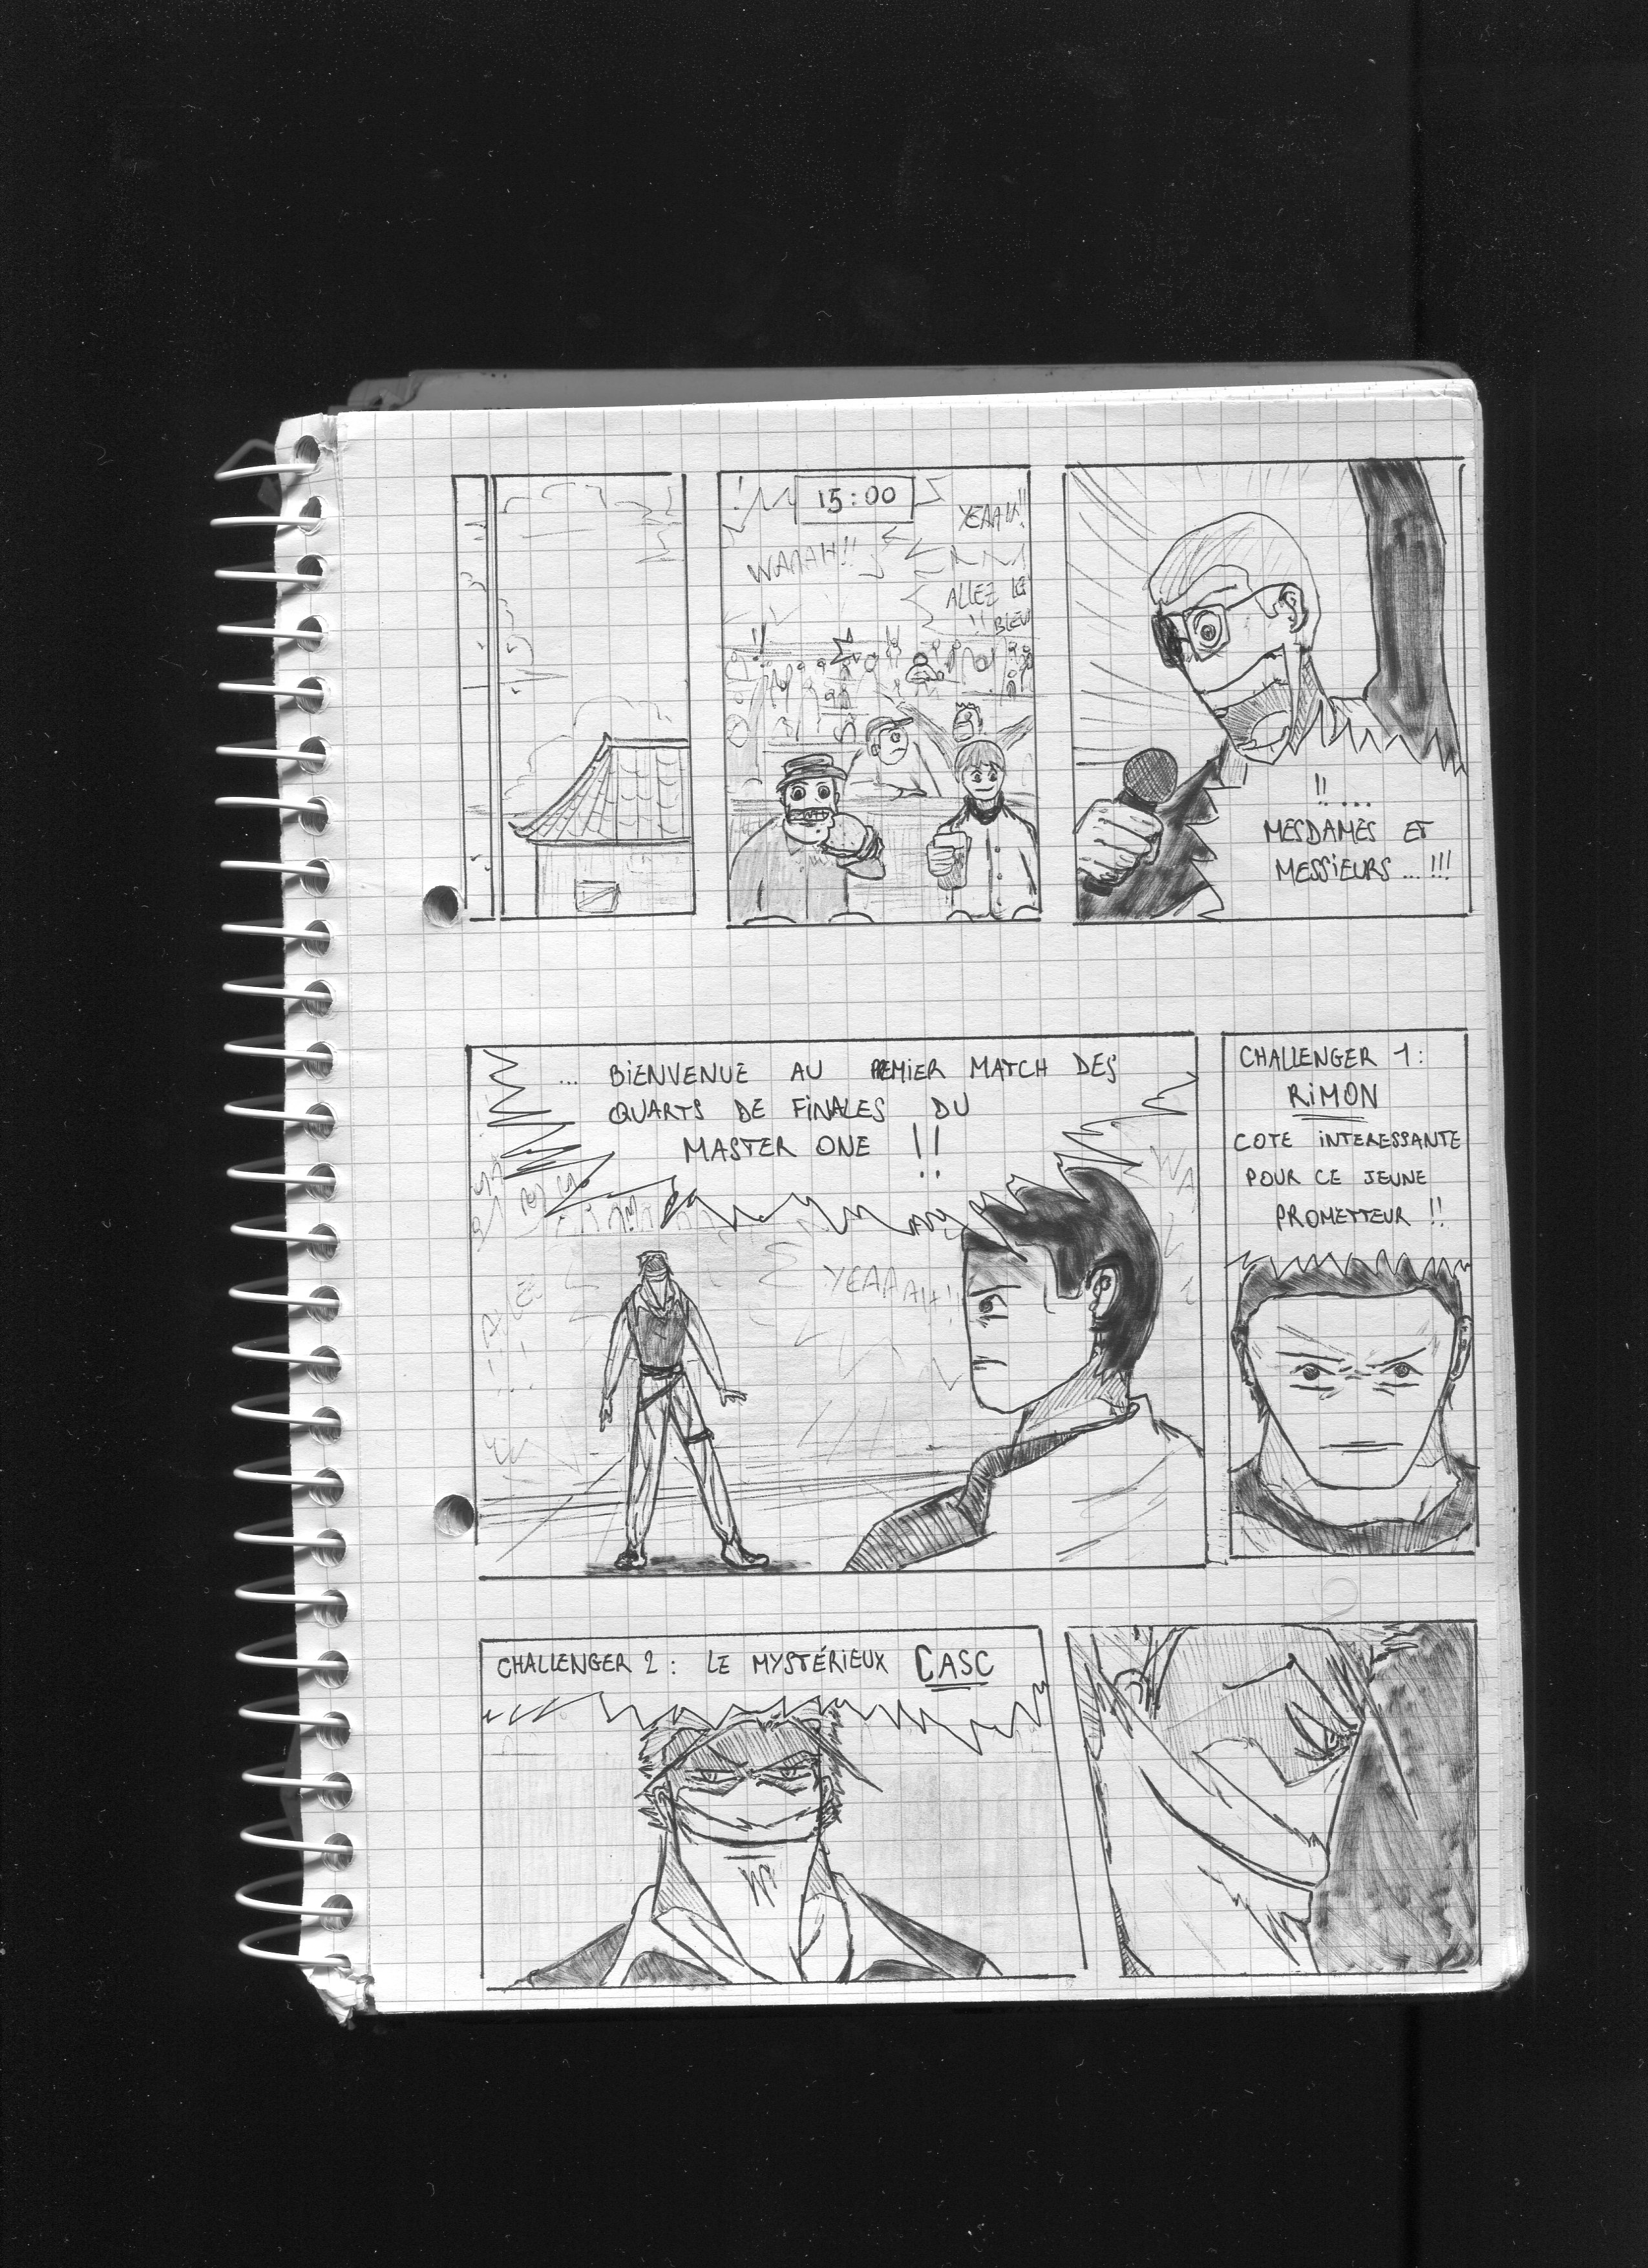 15:00
YEAAH!!
WAAAH!!
ALLEZ LE
!! BLEU
!!
!!...
MESDAMES ET
MESSIEURS...!!!
... BIENVENUE AU PREMIER MATCH DES
QUARTS DE FINALES DU
MASTER ONE !!
YEAAAAH!!
WA
CHALLENGER 1:
RIMON
COTE INTERESSANTE
POUR CE JEUNE
PROMETTEUR !!
CHALLENGER 2: LE MYSTÉRIEUX CASC